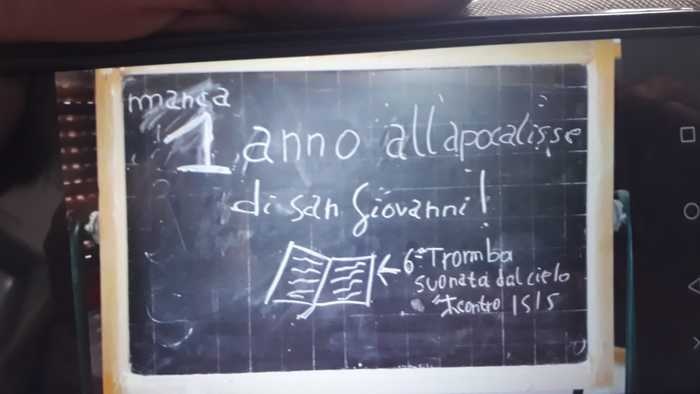 manca
1 anno all'apocalisse
di san Giovanni!
6ª Tromba
suonata dal cielo
contro ISIS